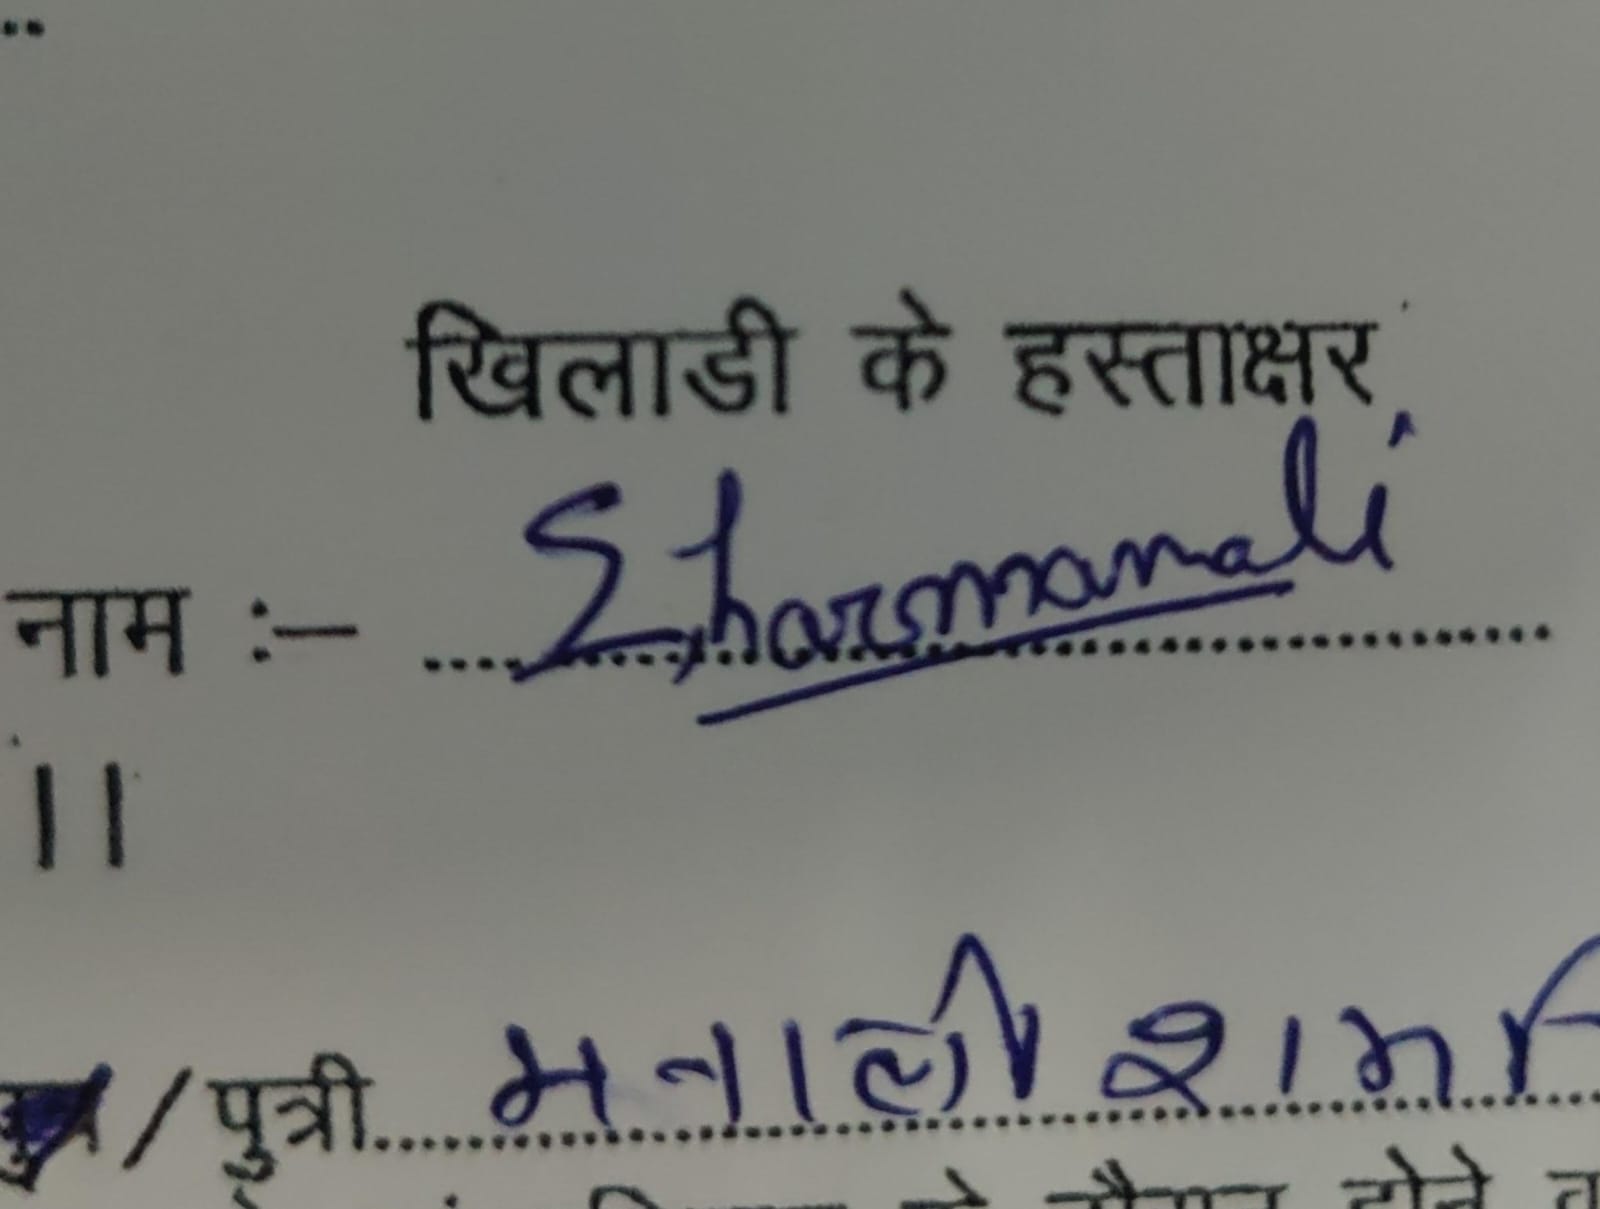 ..
खिलाडी के हस्ताक्षर
नाम :– .... Sharmanali ....
।।
/ पुत्री.... मनाली शर्मा